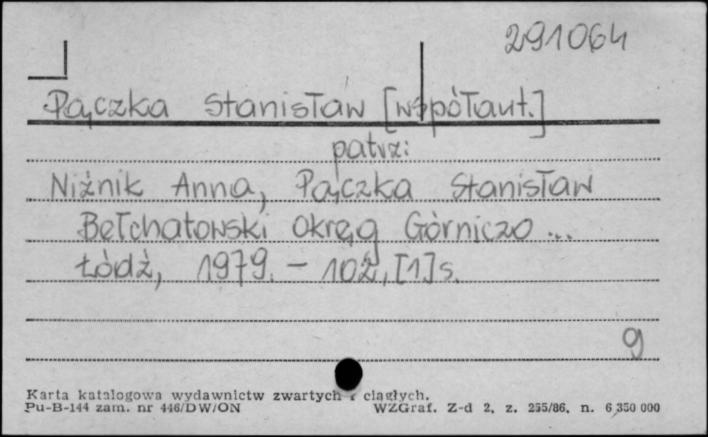 291064
Pączka Stanisław [współaut.]
patrz:
Niźnik Anna, Pączka Stanisław
Bełchatowski Okręg Górniczo ...
Łódź, 1979. - 102, [1] s.
9
Karta katalogowa wydawnictw zwartych i ciągłych.
Pu-B-144 zam. nr 446/DW/ON WZGraf. Z-d 2, z. 255/86, n. 6 350 000